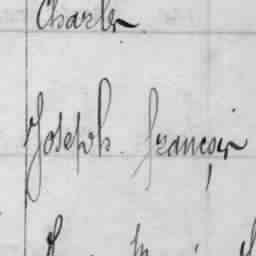 Charles
Joseph. françois